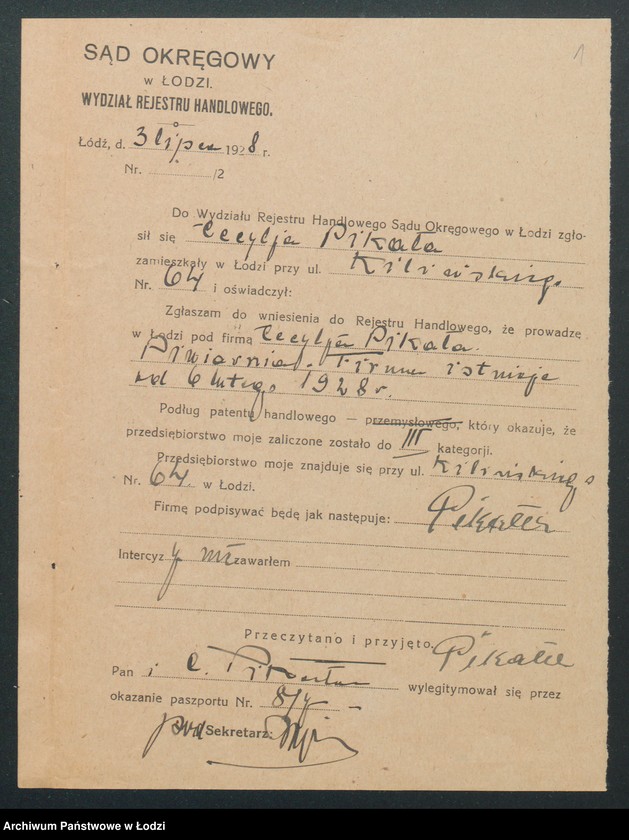 1
SĄD OKRĘGOWY
w ŁODZI.
WYDZIAŁ REJESTRU HANDLOWEGO.
Łódź, d. 3 lipca 1928 r.
Nr. /2
Do Wydziału Rejestru Handlowego Sądu Okręgowego w Łodzi zgło-
sił się Cecylja Pikała
zamieszkały w Łodzi przy ul. Kilińskiego
Nr. 64 i oświadczył:
Zgłaszam do wniesienia do Rejestru Handlowego, że prowadzę
w Łodzi pod firmą Cecylja Pikala.
Piwiarnia. Firma istnieje
od 6 lutego 1928 r.
Podług patentu handlowego — przemysłowego, który okazuje, że
przedsiębiorstwo moje zaliczone zostało do III kategorji.
Przedsiębiorstwo moje znajduje się przy ul. Kilińskiego
Nr. 64. w Łodzi.
Firmę podpisywać będę jak następuje:
Intercyzy nie zawarłem
Przeczytano i przyjęto.
Pan i C. wylegitymował się przez
okazanie paszportu Nr.
Sekretarz:
Archiwum Państwowe w Łodzi